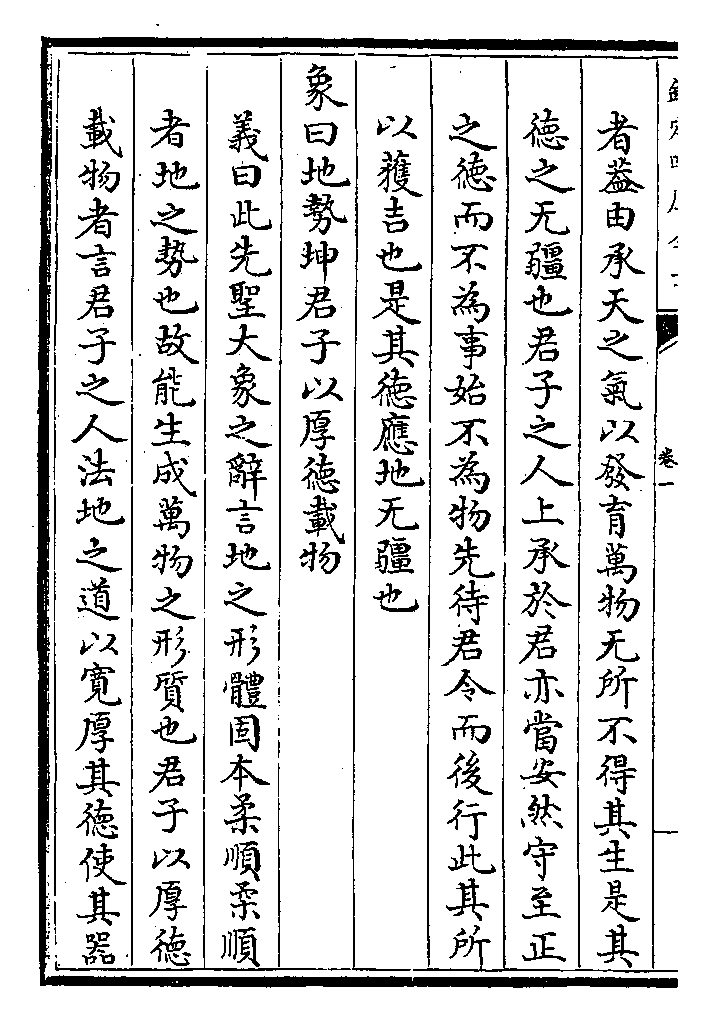 者葢由承天之氣以發育萬物无所不得其生是其
德之无疆也君子之人上承於君亦當安然守至正
之德而不為事始不為物先待君令而後行此其所
以獲吉也是其德應地无疆也
象曰地勢坤君子以厚德載物
義曰此先聖大象之辭言地之形體固本柔順柔順
者地之勢也故能生成萬物之形質也君子以厚德
載物者言君子之人法地之道以寛厚其德使其器
卷一